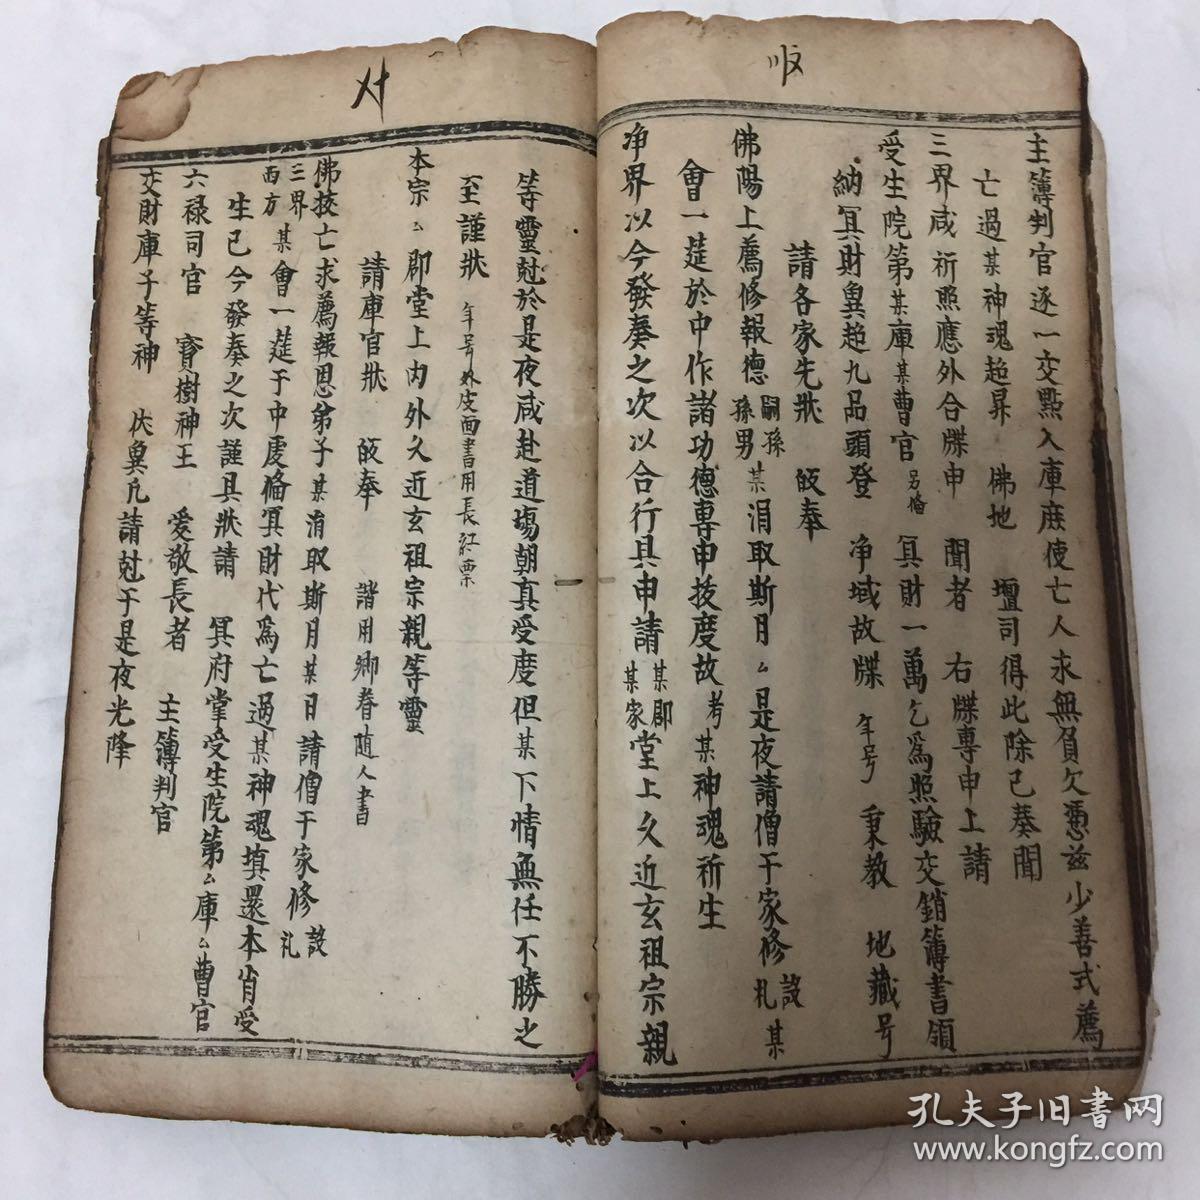 主簿判官逐一交點入庫庶使亡人求無負欠憑兹少善式薦
亡過某神魂超昇 佛地 壇司得此除已奏聞
三界咸祈照應外合牒申 聞者 右牒專申上請
受生院第某庫某曹官 另俻 冥財一萬乞爲照驗交銷簿書領
納冥財兾超九品頭登 净域故牒 年号 秉教 地藏号
請各家先狀 皈奉
佛陽上薦修報德 嗣孫 孫男 某涓取斯月厶是夜請僧于家修 設 礼 某
會一莚於中作諸功德專申拔度故 考 某神魂祈生
净界以今發奏之次以合行具申請 某郡 某家 堂上久近玄祖宗親
等靈兙於是夜咸赴道塲朝真受度但某下情無任不勝之
至謹狀 年号外皮面書用長紅票
本宗厶郡堂上内外久近玄祖宗親等靈
請庫官狀 皈奉 諧用鄉眷随人書
佛拔亡求薦報恩弟子某涓取斯月某日請僧于家修 設 礼
三界 西方 某會一莚于中虔俻冥財代爲亡過某神魂填還本肖受
生已今發奏之次謹具狀請 冥府掌受生院第厶庫厶曹官
六禄司官 寳樹神王 愛敬長者 主簿判官
交財庫子等神 伏兾凡請兙于是夜光降
孔夫子旧書网
www.kongfz.com